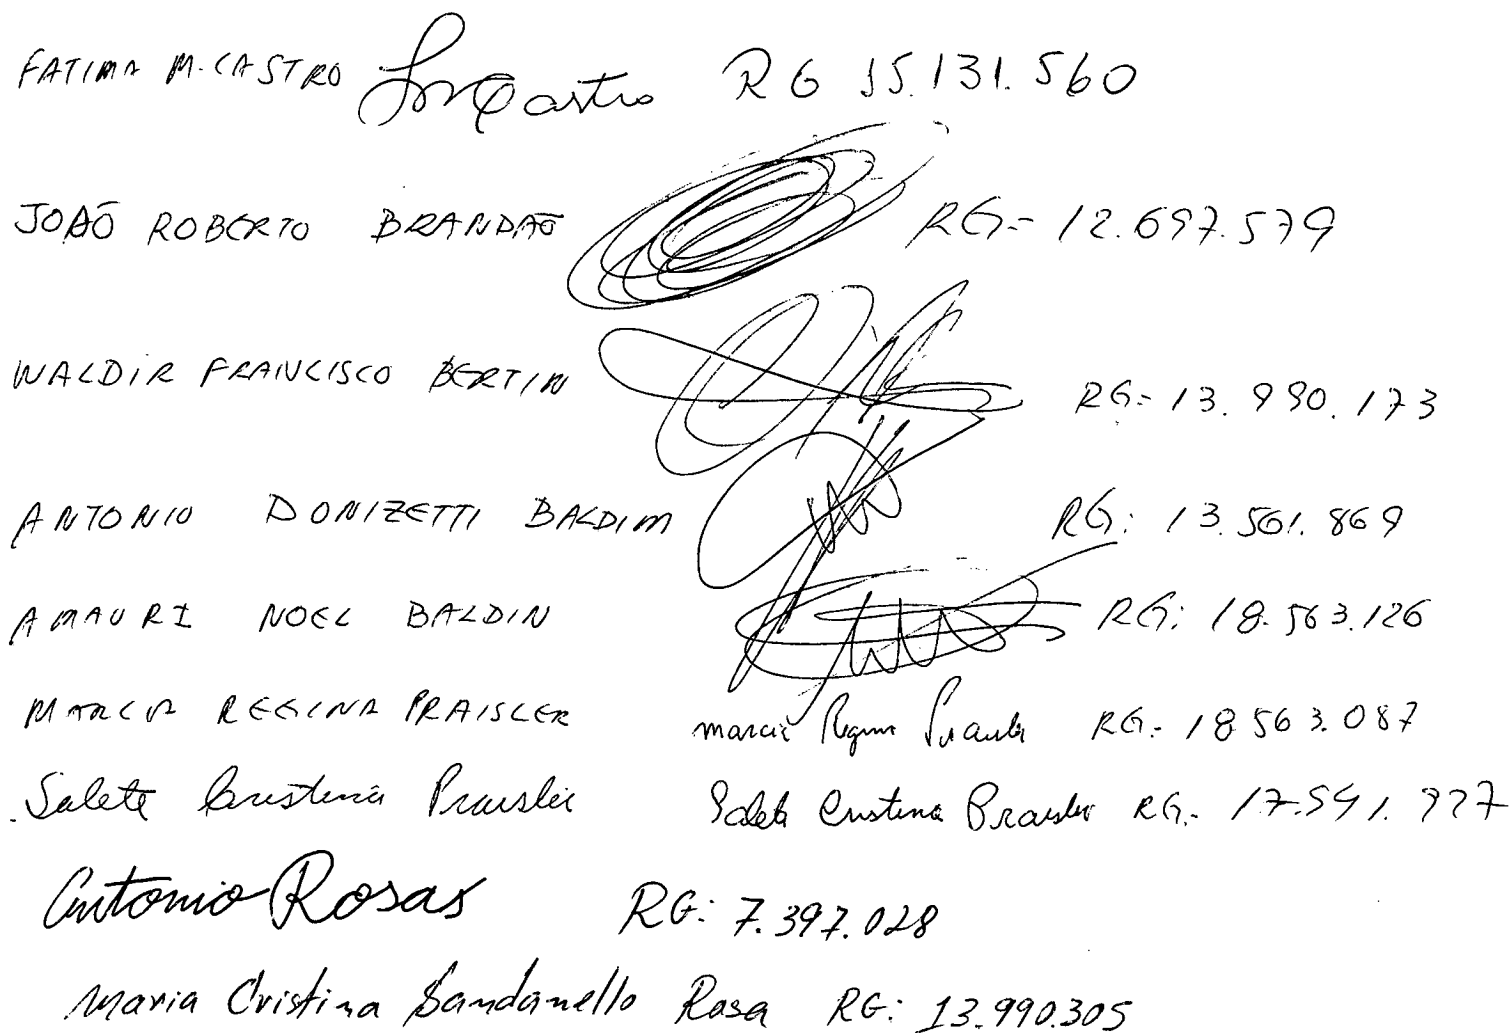 FATIMA M. CASTRO Castro RG 15.131.560
JOÃO ROBERTO BRANDÃO RG- 12.697.579
WALDIR FRANCISCO BERTIN RG- 13.990.173
ANTONIO DONIZETTI BALDIM RG: 13.561.869
AMAURI NOEL BALDIN RG: 18.563.126
MARCIA REGINA PRAISLER marcia Regina RG.- 18563.087
Salete Cristina Praisler Salete Cristina Praisler RG.-
Antonio Rosas RG: 7.397.028
Maria Cristina Sandanello Rosa RG: 13.990.305